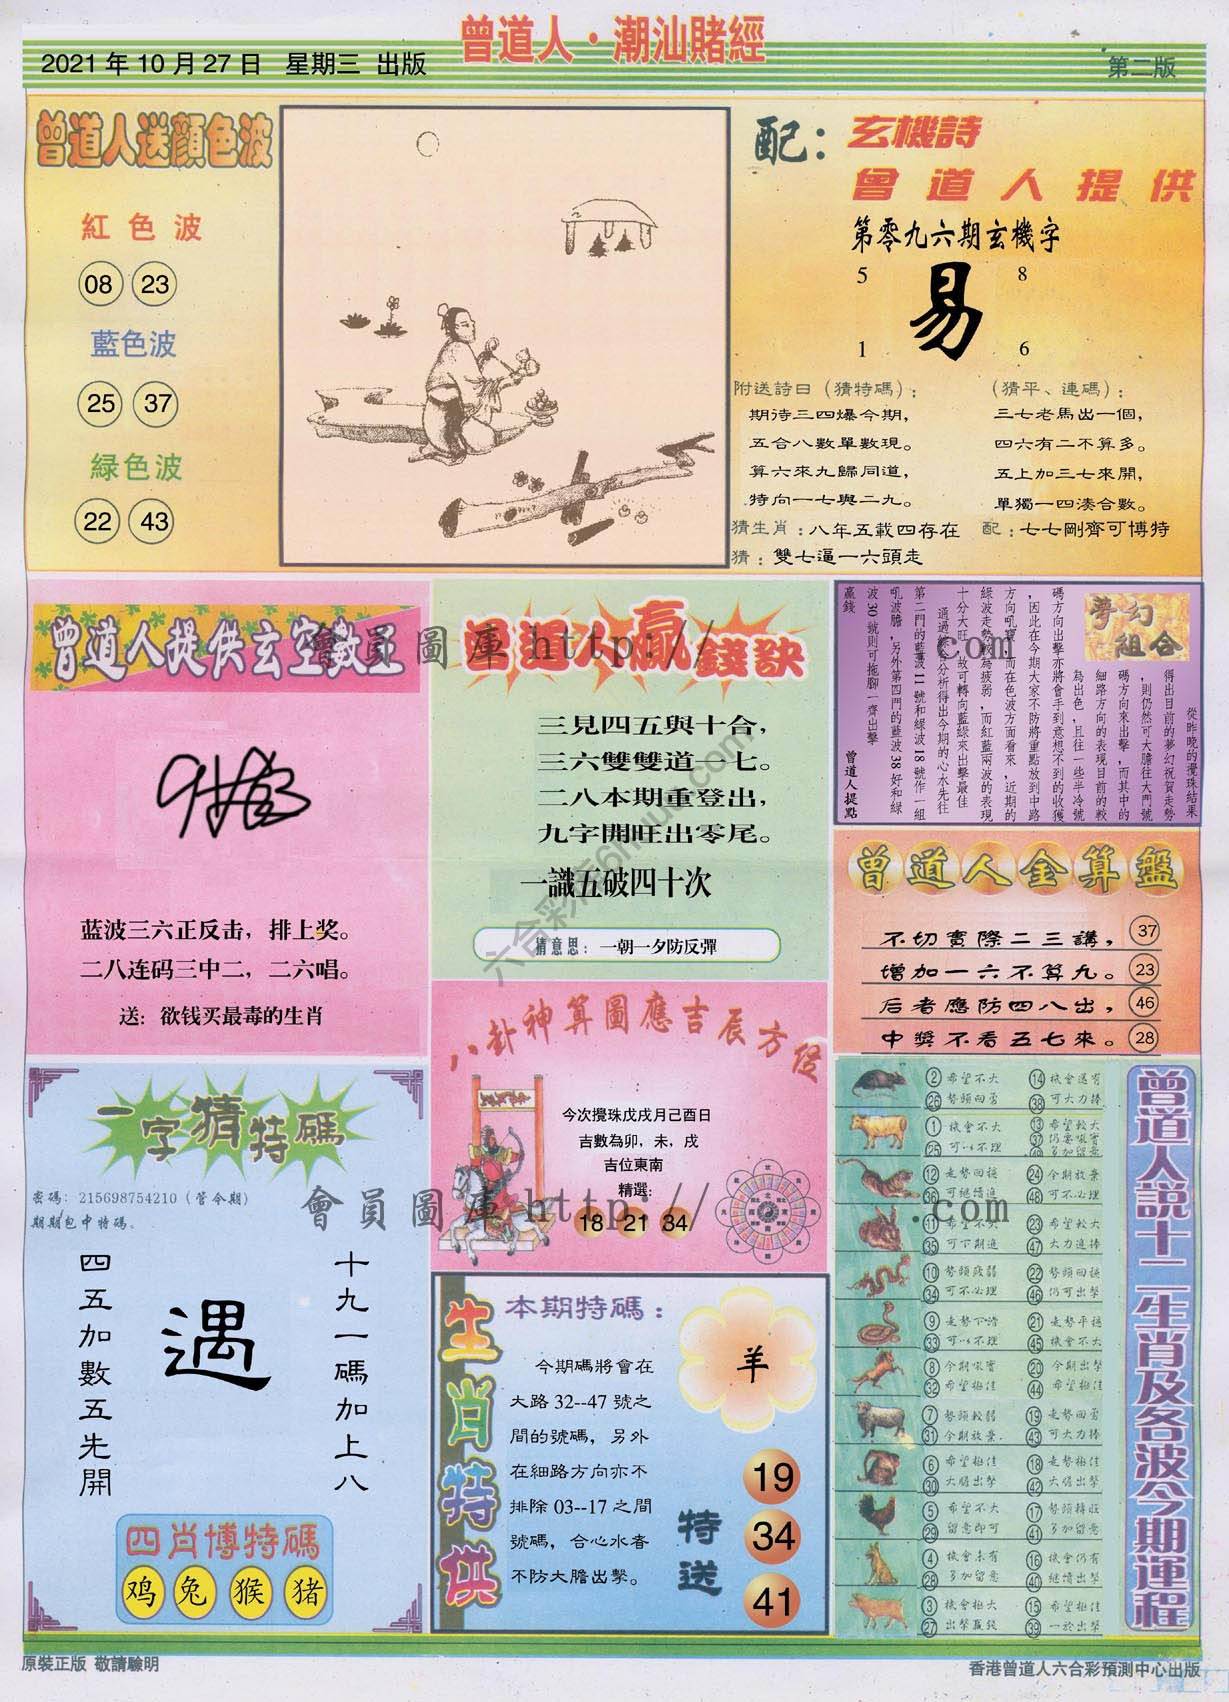 曾道人·潮汕賭經
2021年10月27日 星期三 出版
第二版
曾道人送顏色波
紅色波
08 23
藍色波
25 37
緑色波
22 43
配：玄機詩
曾道人提供
第零九六期玄機字
5 8
易
1 6
附送詩曰（猜特碼）：
期待三四爆今期，
五合八數單數現。
算六來九歸同道，
特向一七與二九。
（猜平、連碼）：
三七老馬出一個，
四六有二不算多。
五上加三七來開，
單獨一四湊合數。
猜生肖：八年五載四存在
配：七七剛齊可博特
猜：雙七逼一六頭走
曾道人提供玄空數王
蓝波三六正反击，排上奖。
二八连码三中二，二六唱。
送：欲钱买最毒的生肖
曾道人贏錢訣
三見四五與十合，
三六雙雙道一七。
二八本期重登出，
九字開旺出零尾。
一識五破四十次
猜意思：一朝一夕防反彈
夢幻組合
從昨晚的攪珠結果
得出目前的夢幻祝賀走勢
，則仍然可大膽往大門號
碼方向來出擊，而其中的
細路方向的表現目前的較
為出色，且往一些半冷號
碼方向出擊亦將會手到意想不到的收獲
，因此在今期大家不防將重點放到中路
方向吼實，而在色波方面看來，近期的
綠波走勢較為疲弱，而紅藍兩波的表現
十分大旺，故可轉向藍綠來出擊最佳
通過綜合分析得出今期的心水先往
第二門的藍波11號和綠波18號作一組
吼波膽，另外第四門的藍波38好和綠
波30號則可拖腳一齊出擊
贏錢
曾道人提點
曾道人金算盤
不切實際二三講， 37
增加一六不算九。 23
后者應防四八出， 46
中獎不看五七來。 28
八卦神算圖應吉辰方位
今次攪珠戊戌月己酉日
吉數為卯，未，戌
吉位東南
精選：
18 21 34
一字猜特碼
密碼：215698754210（管今期）
期期包中特碼。
十九一碼加上八
遇
四五加數五先開
四肖博特碼
鸡 兔 猴 猪
生肖特供
本期特碼：
今期碼將會在
大路32--47號之
間的號碼，另外
在細路方向亦不
排除03--17之間
號碼，合心水者
不防大膽出擊。
羊
特送
19
34
41
曾道人説十二生肖及各波今期運程
② 希望不大 ⑭ 機會還有
26 勢頭回勇 38 可大力捧
① 機會不大 ⑬ 希望較大
25 可以不理 37 仍要吼實
多加留意
⑫ 走勢回穩 24 今期放棄
36 可繼續追 48 可不必理
⑪ 希望不大 23 希望較大
35 可下期追 47 大力追捧
⑩ 勢頭疲弱 22 勢頭回穩
34 可不必理 46 仍可出擊
⑨ 走勢下滑 21 走勢平穩
33 可以不理 45 機會不大
⑧ 今期吼實 20 今期出擊
32 希望極佳 44 希望極佳
⑦ 勢頭較弱 ⑲ 走勢回勇
31 今期放棄. 43 可大力捧
⑥ 希望極佳 ⑱ 走勢極佳
30 大膽出擊 42 大膽出擊
⑤ 希望不大 ⑰ 勢頭轉旺
29 留意即可 41 多加留意
④ 機會未有 ⑯ 機會仍有
28 多加留意 40 繼續出擊
③ 機會極大 ⑮ 希望極佳
27 出擊贏錢 39 一於出擊
會員圖庫 http:// .com
會員圖庫 http:// .com
原裝正版 敬請驗明
香港曾道人六合彩預測中心出版